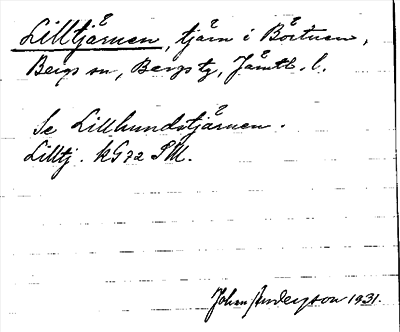 Lilltjärnen, tjärn i Börtnen,
Bergs sn, Bergs tg, Jämtl. l.
Se Lillhundstjärnen.
Lilltj. KG72 SM.
Johan Anderzson 1931.